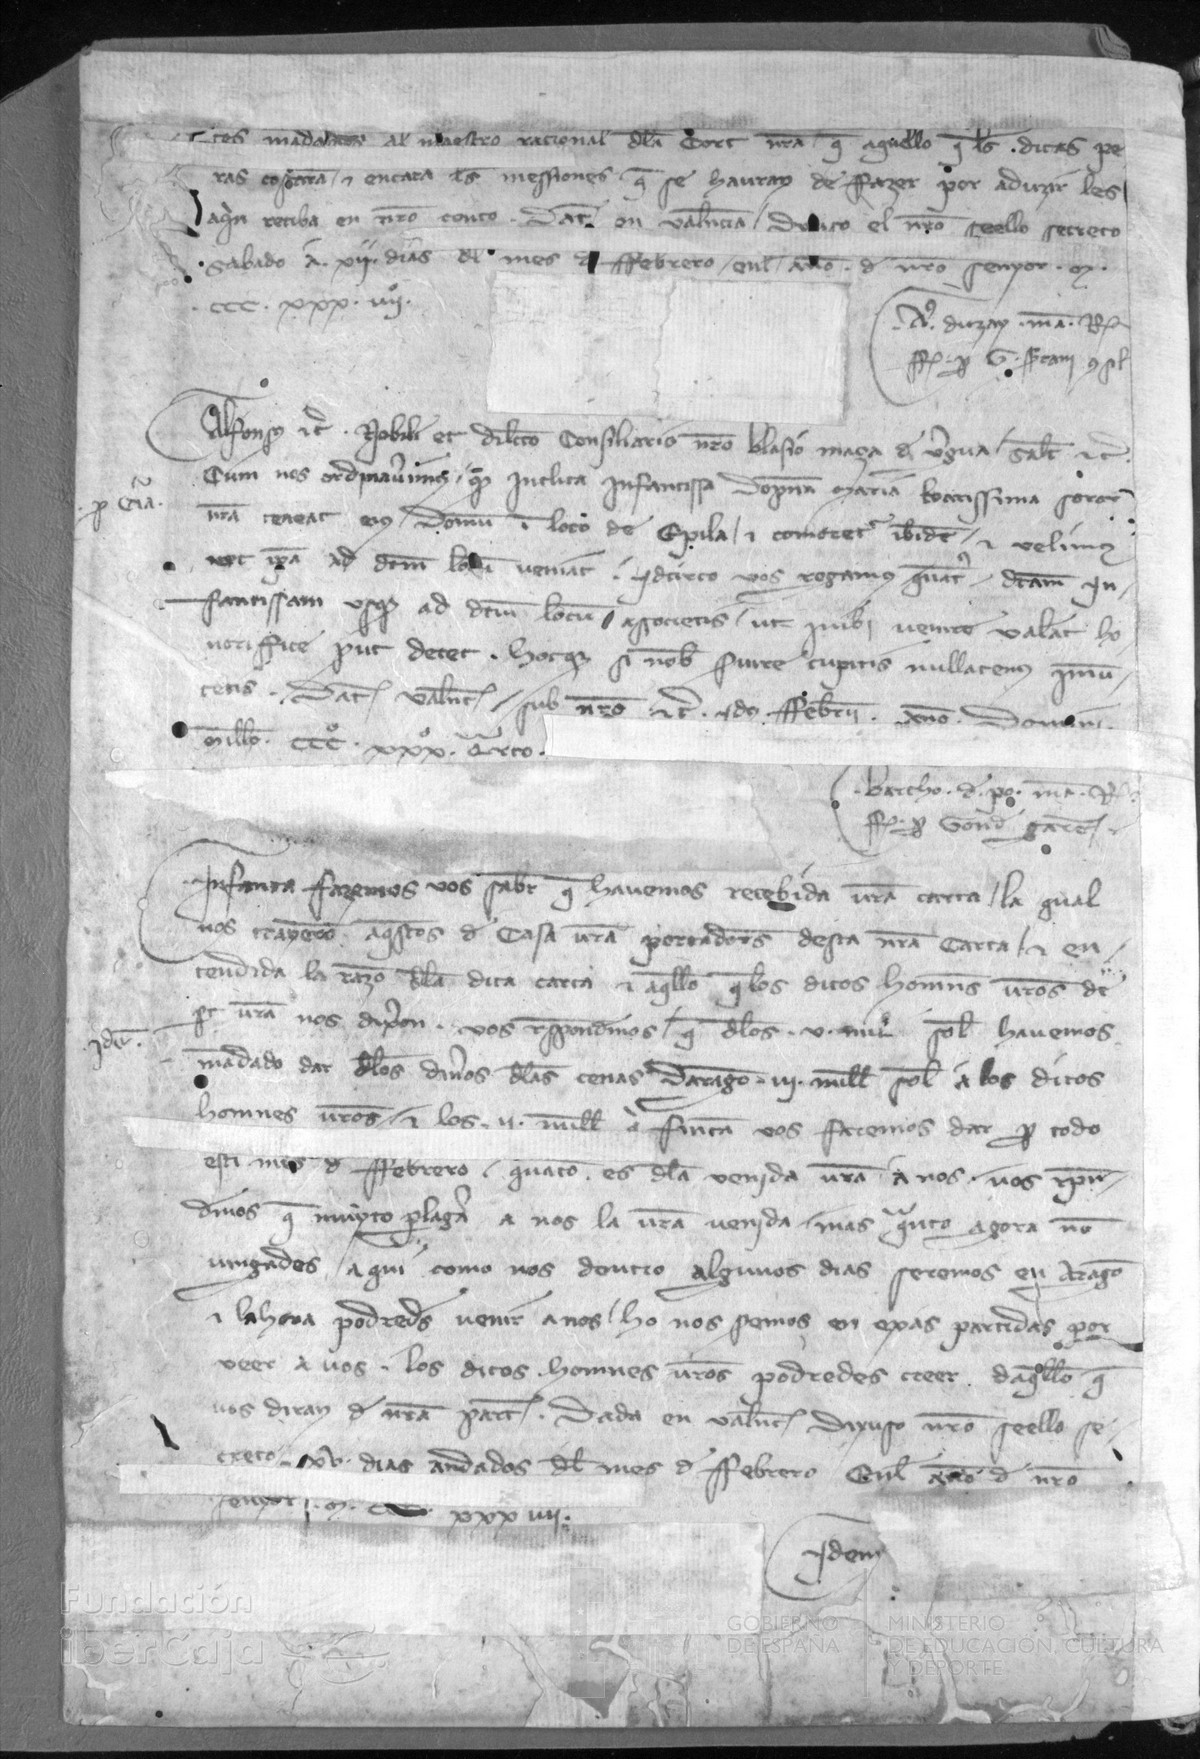 tes madamos al maestro racional dla Cort nra q aquello q ls dictas pe
ras costara / ⁊ encara ls messiones q se hauran de ffazer por aduzir les
aqui reciba en nro conto . Dat en Valencia / Diuso el nro seello secreto
sabado a . xii . dias dl mes d ffebrero / enl año . d nro senyor . M .
. CCC . xxx . iiij .
A . . ma . R
ff . p G .
Alfonsus ⁊c . Nobili et dilcto Consiliario nro blasio maça d vgua / salt ⁊c .
Cum nos ordinauimus / qd Inclita Infantissa Dopna Maria karissima soror
. p Cia .
nra teneat eius Domu i loco de Epila / ⁊ comoret ibide / ⁊ velimus
vt ipa ad dcm locu veniat . Idcirco vos rogamus dcam In /
fantissam vsq ad dcm locu associetis / ut inibi venire valeat ho
noriffice put decet . hocq si nob suire cupitis nullatenus imu /
tetis . Dat Valnc / sub nro ⁊c . Idus ffebrii . Anno . Domini .
Millo . CCCº . xxxº . Qrto .
. bartho . d . po . ma . R
ff . p Gond garce
Infanta fazemos vos sabr q hauemos recebida vra carta / la qual
nos trayeron aqstos d Casa vra portadors desta nra Carta / ⁊ en /
tendida la razo dla dita carta ⁊ aqllo q los ditos homns vros de
pt vra nos dixon . vos rspondmos / q dlos . v . mil sol hauemos
. Ide .
madado dar dlos dinos dlas cenas Darago . iii . mill sol a los ditos
homnes vros / ⁊ los . ii . mill q fincan vos faremos dar p todo
esti mes d ffebrero . quato es dla venida vra a nos . vos rpon /
dmos q muyto plazra a nos la vra venida / mas quto agora no
vengades / aqui como nos dentro algunos dias seremos en Arago
⁊ lahora podreds venir a nos / ho nos semos en exas partidas por
veer a vos . los ditos homnes vros podredes creer daqllo q
vos diran d nra part . Dada en Valnc / Diyuso nro seello se /
creto . xv . dias andados dl mes d ffebrero Enl año d nro
senyor . M . CCC . xxx iiii .
Idem
Fundación
iberCaja
GOBIERNO
DE ESPAÑA
MINISTERIO
DE EDUCACIÓN, CULTURA
Y DEPORTE